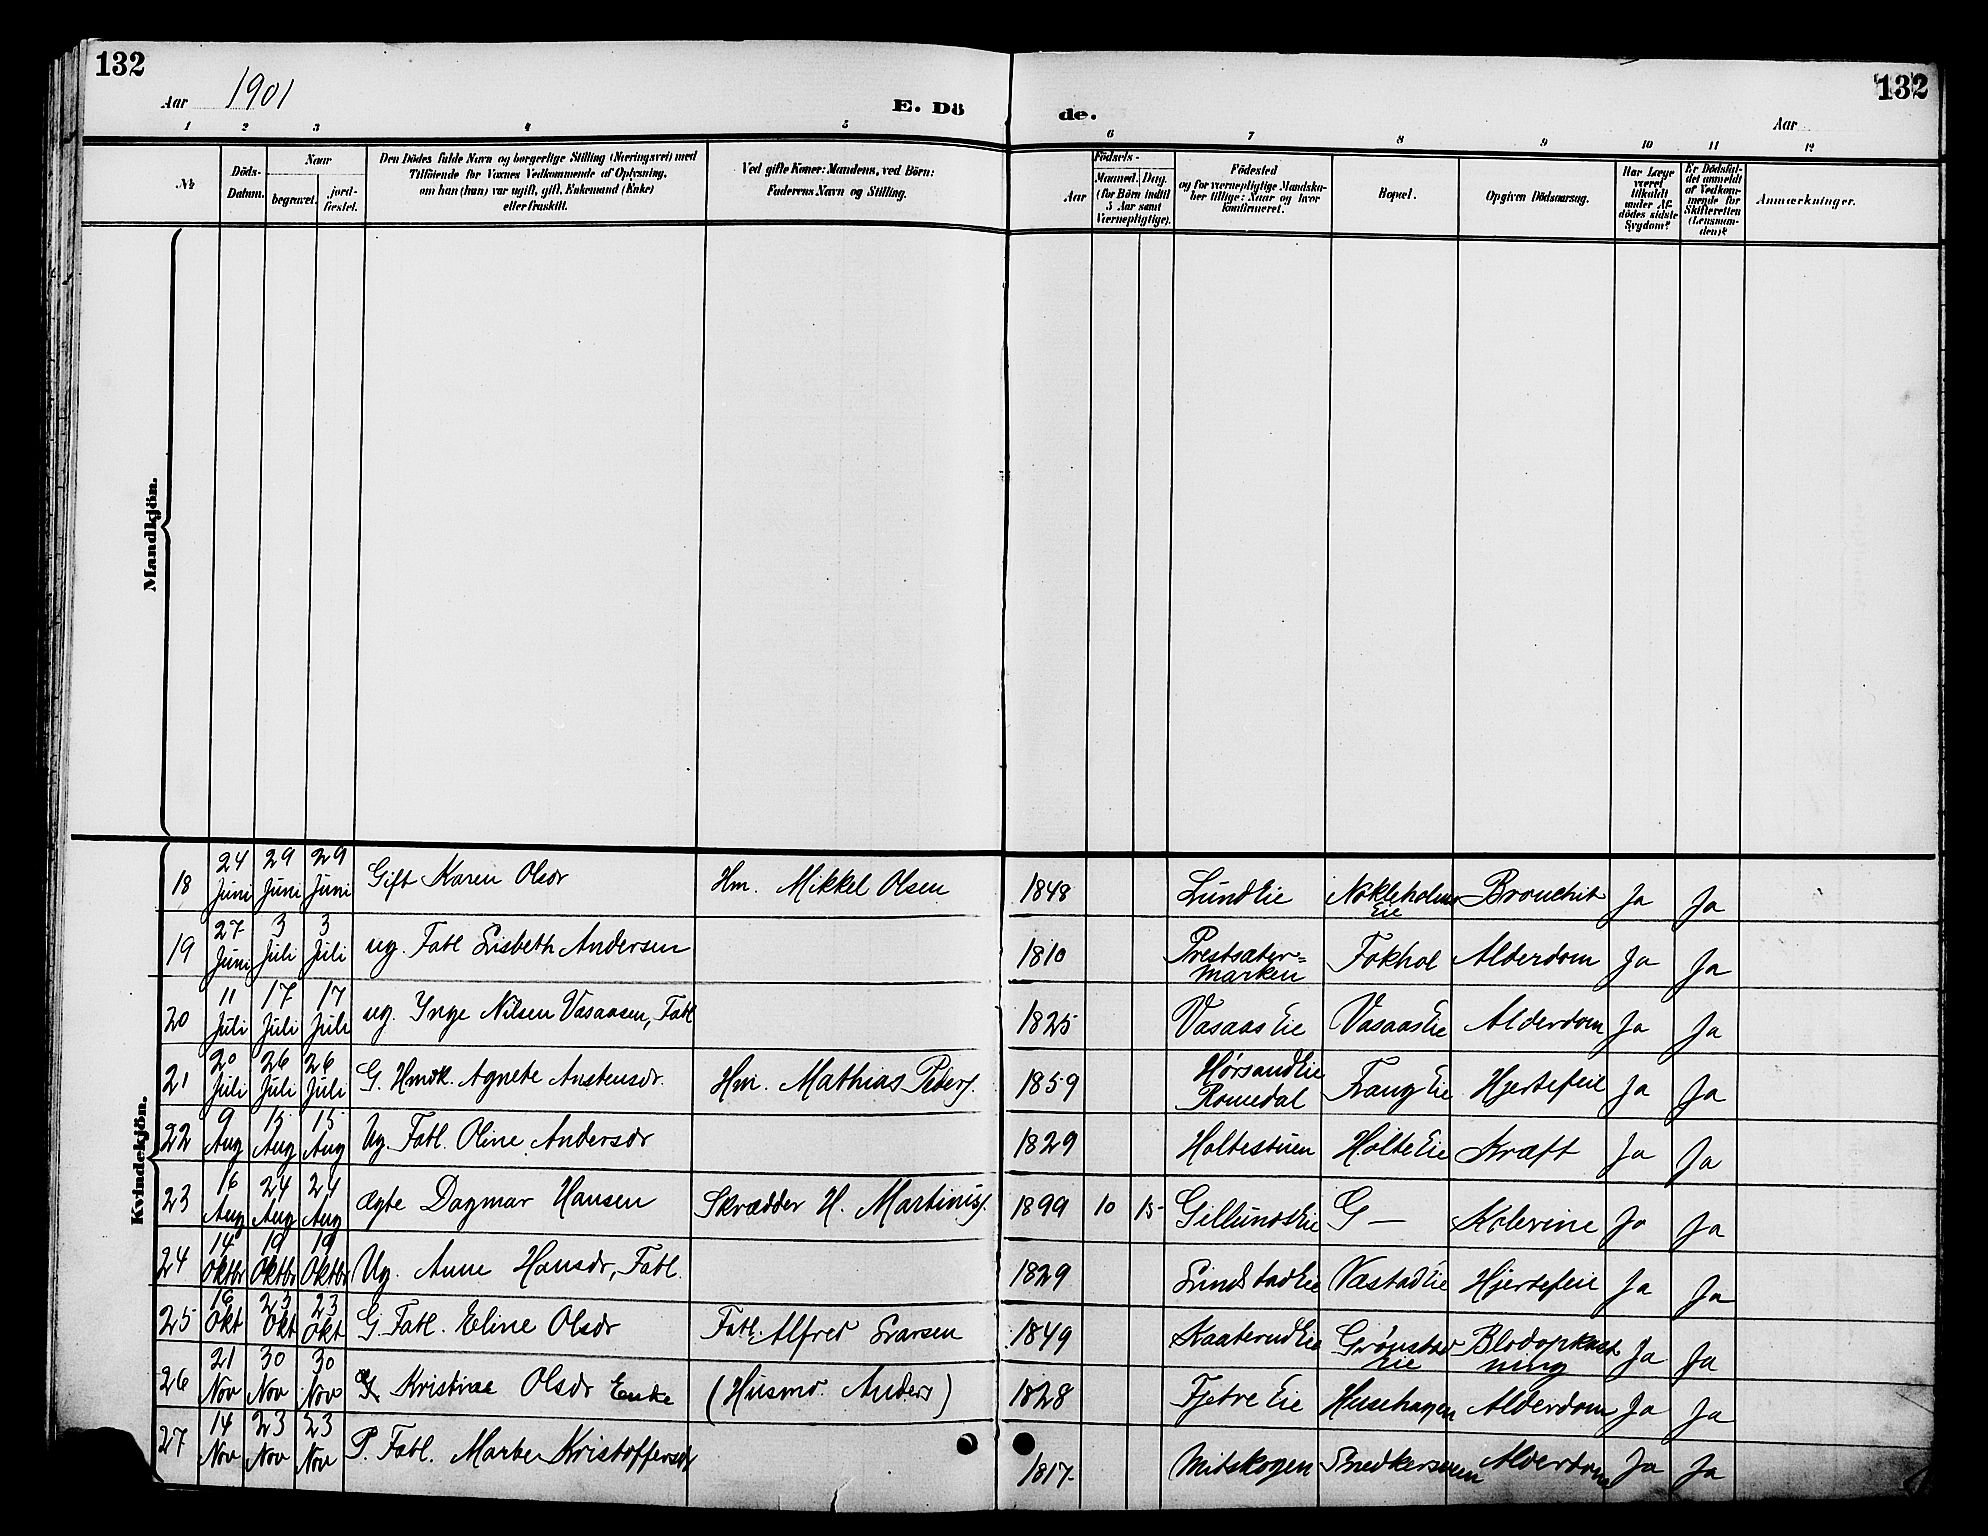 132
132
Aar 1901
E. Dö
de.
Aar
1 2 3 4 5 6 7 8 9 10 11 12
№
Döds-
Datum.
Naar
begravet.
jord-
fæstet.
Den Dödes fulde Navn og borgerlige Stilling (Næringsvei) med
Tilföiende for Voxnes Vedkommende af Oplysning,
om han (hun) var ugift, gift, Enkemand (Enke)
eller fraskilt.
Ved gifte Koner: Mandens, ved Börn:
Faderens Navn og Stilling.
Födsels-
Aar
Maaned. Dag.
(for Börn indtil
5 Aar samt
Værnepligtige).
Födested
og for værnepligtige Mandska-
ber tillige: Naar og hvor
konfirmeret.
Bopæl.
Opgiven Dödsaarsag.
Har Læge
været
tilkaldt
under Af-
dödes sidste
Sygdom?
Er Dödsfal-
det anmeldt
af Vedkom-
mende for
Skifteretten
(Lensman-
den)?
Anmærkninger.
Mandkjön.
Kvindekjön.
18 24 Juni 29 Juni 29 Juni Gift Karen Olsdr Hm. Mikkel Olsen 1848 Lund Eie Nokleholms Eie Bronchit Ja Ja
19 27 Juni 3 Juli 3 Juli ug. Fatl Lisbeth Andersen 1810 Prestsæter= marken Fokhol Alderdom Ja Ja
20 11 Juli 17 Juli 17 Juli ug. Inge Nilsen Vasaasen, Fatl 1825 Vasaas Eie Vasaas Eie Alderdom Ja Ja
21 20 Juli 26 Juli 26 Juli G. Hmdk. Agnete Anstensdr. Hm. Mathias Peders. 1859 Hørsand Eie Romedal Frang Eie Hjertefeil Ja Ja
22 9 Aug 15 Aug 15 Aug Ug. Fatl. Oline Andersdr 1829 Holtestuen Holte Eie Kræft Ja Ja
23 16 Aug 24 Aug 24 Aug ægte Dagmar Hansen Skrædder H. Martinius. 1899 10 15 Gillunds Eie G — Kolerine Ja Ja
24 14 Oktbr 19 Oktbr 19 Oktbr Ug. Anne Hansdr, Fatl. 1829 Lindstad Eie Væstad Eie Hjertefeil Ja Ja
25 16 Okt 23 Okt 23 Okt G. Fatl. Eline Olsdr Fatl. Alfred Larsen 1849 Kaaterud Eie Grønstad Eie Blodopkast ning Ja Ja
26 21 Nov 30 Nov 30 Nov Kristine Olsdr Enke (Husmd. Anders) 1828 Fjetre Eie Husehagen Alderdom Ja Ja
27 14 Nov 23 Nov 23 Nov P. Fatl. Marte Kristoffersdr 1817 Mitskogen Alderdom Ja Ja